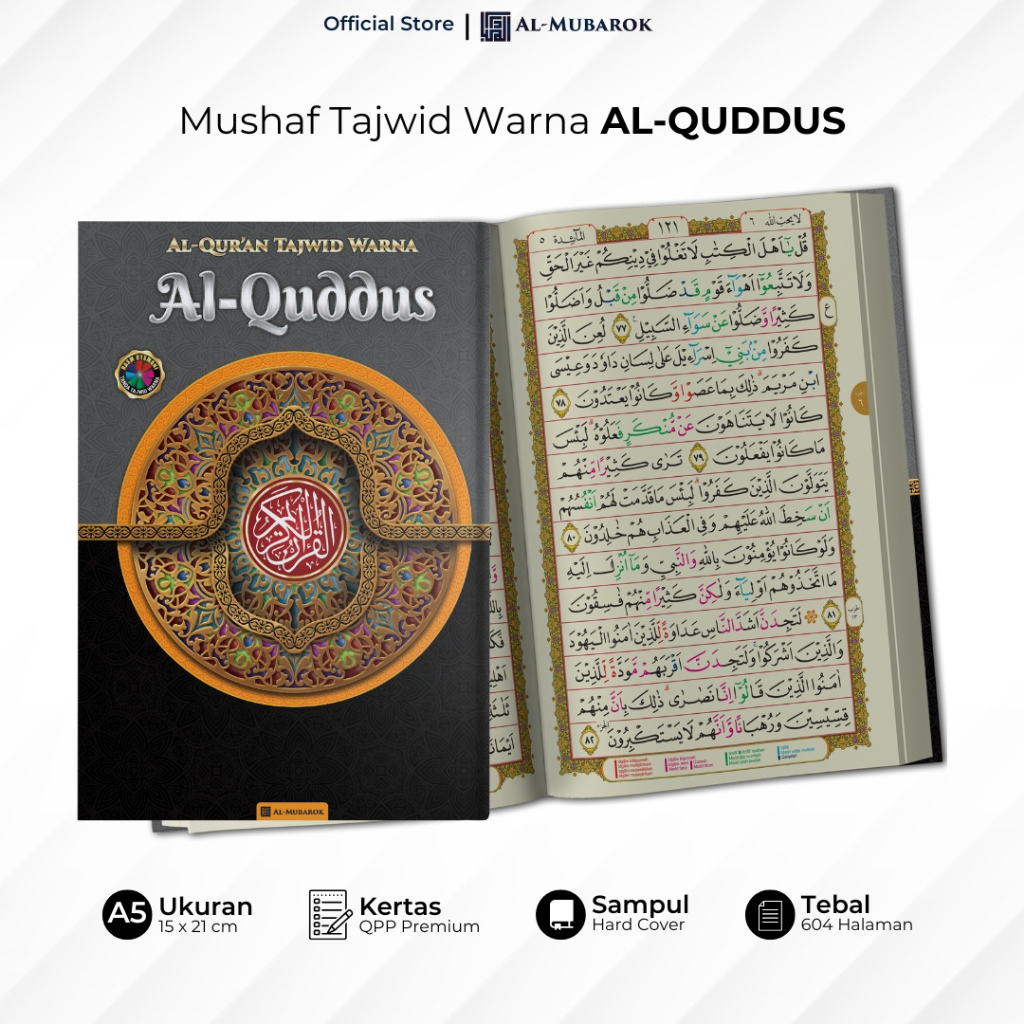 Official Store | AL-MUBAROK
Mushaf Tajwid Warna AL-QUDDUS
AL-QUR'AN TAJWID WARNA
Al-Quddus
القرآن الكريم
AL-MUBAROK
لايحب الله ٦
١٢١
المآئدة ٥
قُلْ يٰٓاَهْلَ الْكِتٰبِ لَا تَغْلُوْا فِيْ دِيْنِكُمْ غَيْرَ الْحَقِّ
وَلَا تَتَّبِعُوْٓا اَهْوَاۤءَ قَوْمٍ قَدْ ضَلُّوْا مِنْ قَبْلُ وَاَضَلُّوْا
كَثِيْرًا وَّضَلُّوْا عَنْ سَوَاۤءِ السَّبِيْلِ ٧٧ لُعِنَ الَّذِيْنَ
كَفَرُوْا مِنْۢ بَنِيْٓ اِسْرَاۤءِيْلَ عَلٰى لِسَانِ دَاوٗدَ وَعِيْسَى
ابْنِ مَرْيَمَ ۗ ذٰلِكَ بِمَا عَصَوْا وَّكَانُوْا يَعْتَدُوْنَ ٧٨
كَانُوْا لَا يَتَنَاهَوْنَ عَنْ مُّنْكَرٍ فَعَلُوْهُ ۗ لَبِئْسَ
مَا كَانُوْا يَفْعَلُوْنَ ٧٩ تَرٰى كَثِيْرًا مِّنْهُمْ
يَتَوَلَّوْنَ الَّذِيْنَ كَفَرُوْا ۗ لَبِئْسَ مَا قَدَّمَتْ لَهُمْ اَنْفُسُهُمْ
اَنْ سَخِطَ اللّٰهُ عَلَيْهِمْ وَفِى الْعَذَابِ هُمْ خٰلِدُوْنَ ٨٠
وَلَوْ كَانُوْا يُؤْمِنُوْنَ بِاللّٰهِ وَالنَّبِيِّ وَمَآ اُنْزِلَ اِلَيْهِ
مَا اتَّخَذُوْهُمْ اَوْلِيَاۤءَ وَلٰكِنَّ كَثِيْرًا مِّنْهُمْ فٰسِقُوْنَ
٨١ لَتَجِدَنَّ اَشَدَّ النَّاسِ عَدَاوَةً لِّلَّذِيْنَ اٰمَنُوا الْيَهُوْدَ
وَالَّذِيْنَ اَشْرَكُوْا ۚ وَلَتَجِدَنَّ اَقْرَبَهُمْ مَّوَدَّةً لِّلَّذِيْنَ
اٰمَنُوا الَّذِيْنَ قَالُوْٓا اِنَّا نَصٰرٰى ۗ ذٰلِكَ بِاَنَّ مِنْهُمْ
قِسِّيْسِيْنَ وَرُهْبَانًا وَّاَنَّهُمْ لَا يَسْتَكْبِرُوْنَ ٨٢
A5 Ukuran
15 x 21 cm
Kertas
QPP Premium
Sampul
Hard Cover
Tebal
604 Halaman